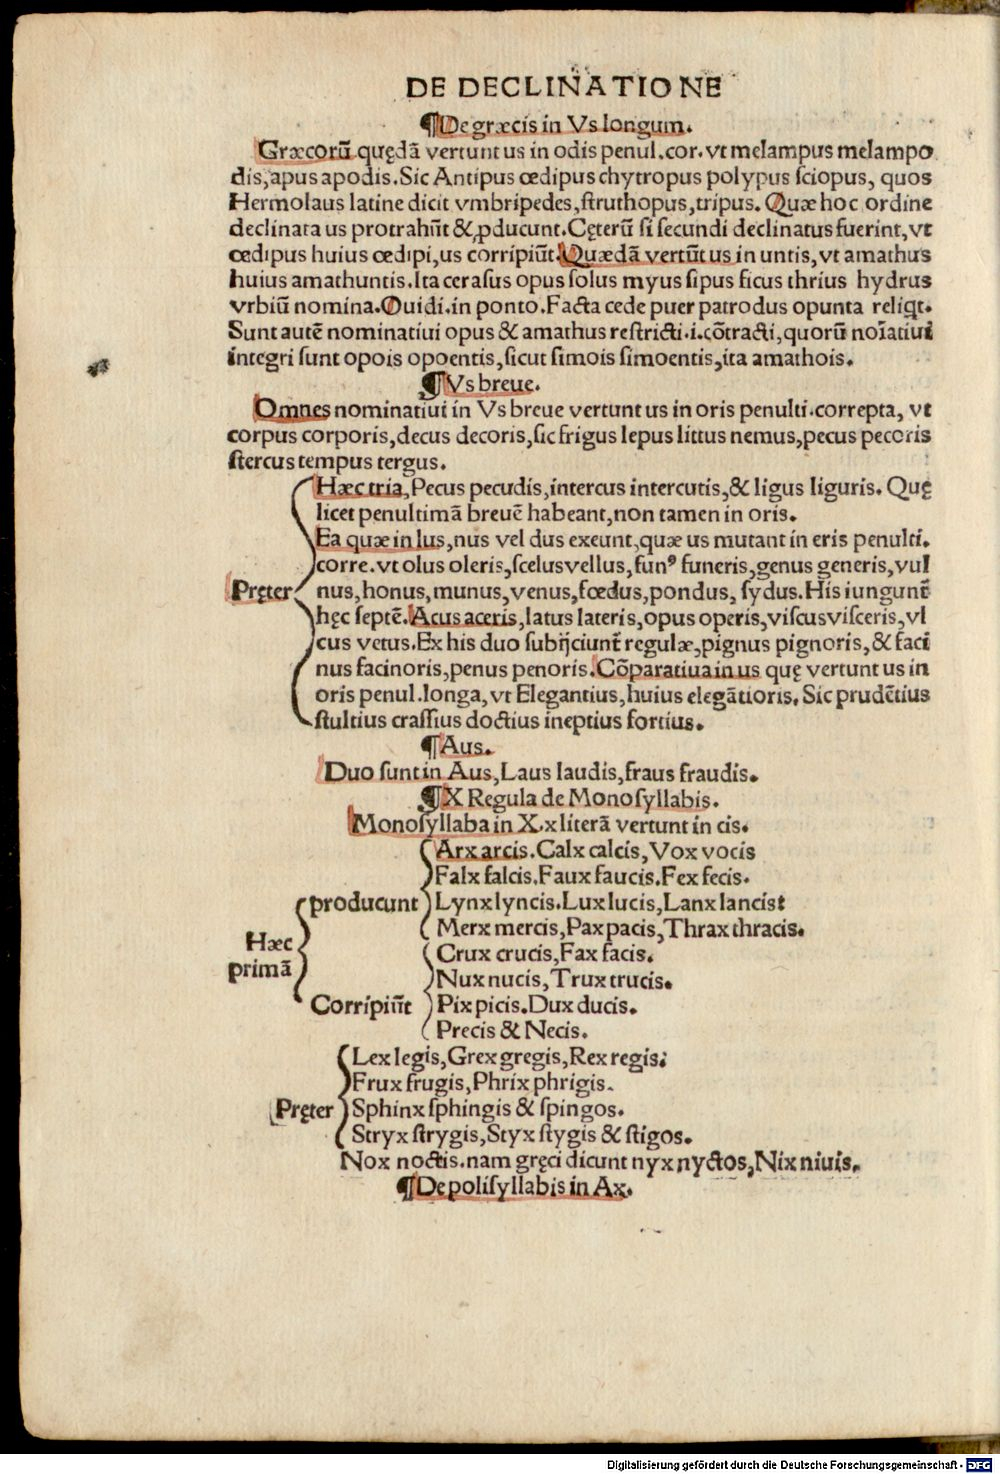 DE DECLINATIONE
¶De græcis in Vs longum.
Græcorū quędā vertunt us in odis penul.cor. vt melampus melampo
dis,apus apodis.Sic Antipus œdipus chytropus polypus ſciopus, quos
Hermolaus latine dicit vmbripedes,ſtruthopus,tripus. Quæ hoc ordine
declinata us protrahūt &,ꝓducunt.Cęterū ſi ſecundi declinatus fuerint,vt
œdipus huius œdipi,us corripiūt.Quædā vertūt us in untis,vt amathus
huius amathuntis.Ita ceraſus opus ſolus myus ſipus ficus thrius hydrus
vrbiū nomina.Ouidi.in ponto.Facta cede puer patrodus opunta reliqt.
Sunt autē nominatiui opus & amathus reſtricti.i.cōtracti,quorū noīatiui
integri ſunt opois opoentis,ſicut ſimois ſimoentis,ita amathois.
¶Vs breue.
Omnes nominatiui in Vs breue vertunt us in oris penulti.correpta, vt
corpus corporis,decus decoris,ſic frigus lepus littus nemus,pecus pecoris
ſtercus tempus tergus.
Hæc tria,Pecus pecudis,intercus intercutis,& ligus liguris. Quę
licet penultimā breuē habeant,non tamen in oris.
Ea quæ in lus,nus vel dus exeunt,quæ us mutant in eris penulti.
corre.vt olus oleris,ſcelus vellus,funꝰ funeris,genus generis,vul
Pręter nus,honus,munus,venus,fœdus,pondus, ſydus.His iungunt̄
hęc ſeptē.Acus aceris,latus lateris,opus operis,viſcus viſceris,vl
cus vetus.Ex his duo ſubijciunt̄ regulæ,pignus pignoris,& faci
nus facinoris,penus penoris.Cōparatiua in us quę vertunt us in
oris penul.longa,vt Elegantius,huius elegātioris. Sic prudētius
ſtultius craſſius doctius ineptius fortius.
¶Aus.
Duo ſunt in Aus,Laus laudis,fraus fraudis.
¶X Regula de Monoſyllabis.
Monoſyllaba in X.x literā vertunt in cis.
Arx arcis.Calx calcis,Vox vocis
Falx falcis.Faux faucis.Fex fecis.
producunt Lynx lyncis.Lux lucis,Lanx lancist
Merx mercis,Pax pacis,Thrax thracis.
Hæc Crux crucis,Fax facis.
primā Nux nucis,Trux trucis.
Corripiūt Pix picis.Dux ducis.
Precis & Necis.
Lex legis,Grex gregis,Rex regis:
Frux frugis,Phrix phrigis.
Pręter Sphinx ſphingis & ſpingos.
Stryx ſtrygis,Styx ſtygis & ſtigos.
Nox noctis.nam gręci dicunt nyx nyctos,Nix niuis.
¶De poliſyllabis in Ax.
Digitalisierung gefördert durch die Deutsche Forschungsgemeinschaft - DFG